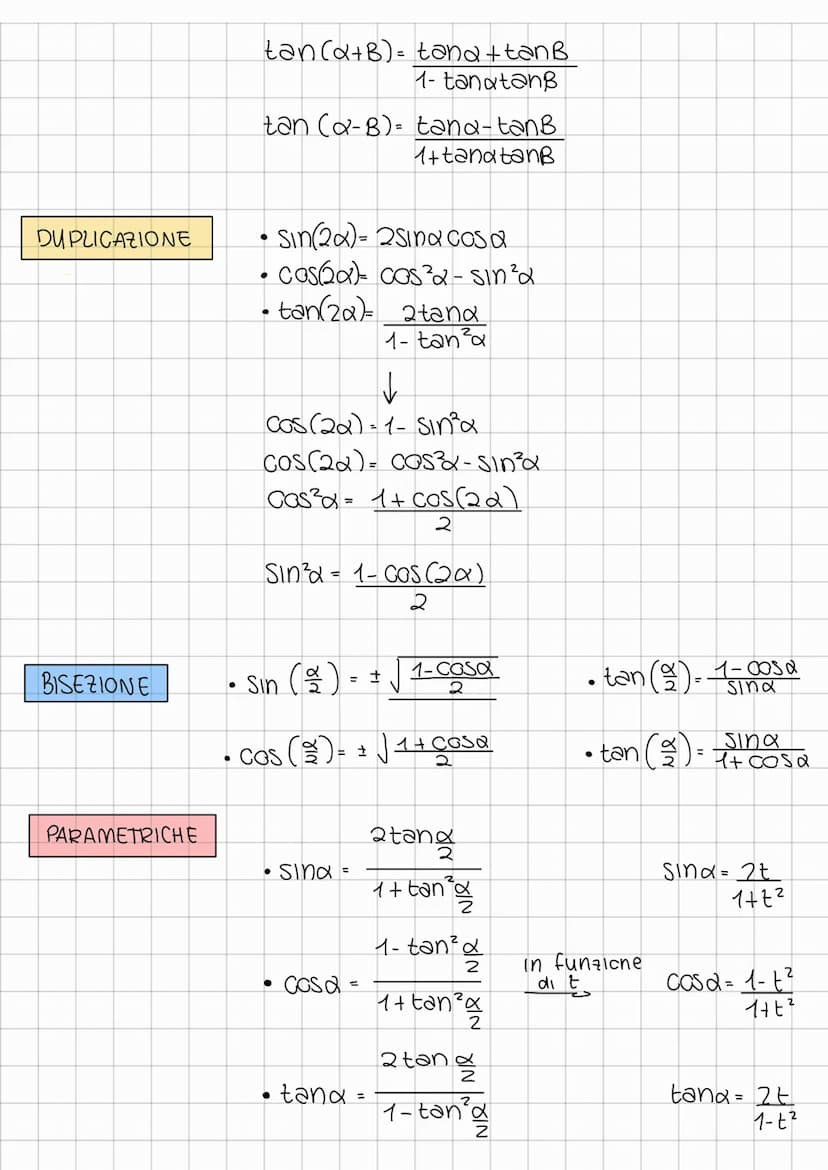 tan(α+B)= tanα+tanB / 1-tanαtanB
tan(α-B)= tanα-tanB / 1+tanαtanB
DUPLICAZIONE
• sin(2α)= 2sinαcosα
• cos(2α)= cos²α-sin²α
• tan(2α)= 2tanα / 1-tan²α
↓
cos(2α)=1-sin²α
cos(2α)= cos²α-sin²α
cos²α= 1+cos(2α) / 2
sin²α= 1-cos(2α) / 2
BISEZIONE
• sin(α/2)= ±√(1-cosα / 2)
• tan(α/2)= 1-cosα / sinα
• cos(α/2)= ±√(1+cosα / 2)
• tan(α/2)= sinα / 1+cosα
PARAMETRICHE
• sinα= 2tanα/2 / 1+tan²α/2
sinα= 2t / 1+t²
• cosα= 1-tan²α/2 / 1+tan²α/2
in funzione
di t
cosα= 1-t² / 1+t²
• tanα= 2tanα/2 / 1-tan²α/2
tanα= 2t / 1-t²